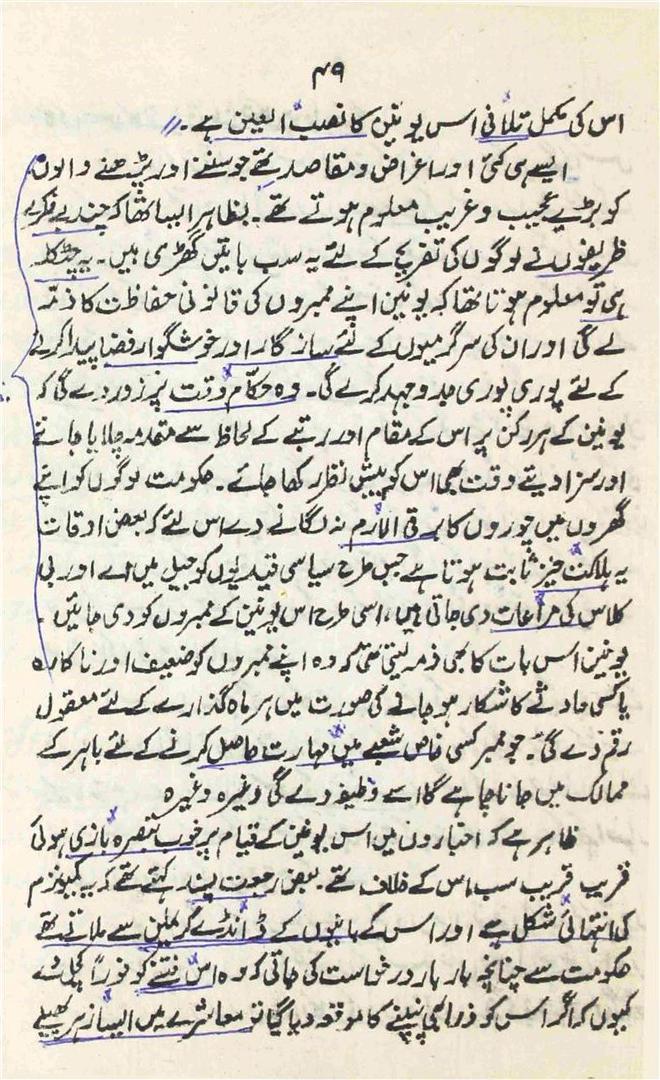 ۴۹
اس کی مکمل تلافی اس یونین کا نصب العین ہے۔
ایسے ہی کئی اور اغراض و مقاصد تھے جو سننے اور پڑھنے والوں
کو بڑے عجیب و غریب معلوم ہوتے تھے۔ بظاہر ایسا تھا کہ چند بے فکرے
ظریفوں نے لوگوں کی تفریح کے لئے یہ سب باتیں گھڑی ہیں۔ یہ چٹکلہ
ہی تو معلوم ہوتا تھا کہ یونین اپنے ممبروں کی قانونی حفاظت کا ذمہ
لے گی اور ان کی سرگرمیوں کے لئے سازگار اور خوشگوار فضا پیدا کرنے
کے لئے پوری پوری جدوجہد کرے گی۔ وہ حکّام وقت پر زور دے گی کہ
یونین کے ہر رکن پر اس کے مقام اور رتبے کے لحاظ سے مقدمہ چلایا جائے
اور سزا دیتے وقت بھی اس کو پیش نظر رکھا جائے۔ حکومت لوگوں کو اپنے
گھروں میں چوروں کا برقی الارم نہ لگانے دے اس لئے کہ بعض اوقات
یہ ہلاکت خیز ثابت ہوتا ہے جس طرح سیاسی قیدیوں کو جیل میں اے اور بی
کلاس کی مراعات دی جاتی ہیں، اسی طرح اس یونین کے ممبروں کو دی جائیں۔
یونین اس بات کا بھی ذمہ لیتی تھی کہ وہ اپنے ممبروں کو ضعیف اور ناکارہ
یا کسی حادثے کا شکار ہو جانے کی صورت میں ہر ماہ گذارے کے لئے معقول
رقم دے گی۔ جو ممبر کسی خاص شعبے میں مہارت حاصل کرنے کے لئے باہر کے
ممالک میں جانا چاہے گا اسے وظیفہ دے گی وغیرہ وغیرہ
ظاہر ہے کہ اخباروں میں اس یونین کے قیام پر خوب تبصرہ بازی ہوئی
قریب قریب سب اس کے خلاف تھے۔ بعض رجعت پسند کہتے تھے کہ یہ کمیونزم
کی انتہائی شکل ہے اور اس کے بانیوں کے ڈانڈے کریملن سے ملاتے تھے
حکومت سے چنانچہ بار بار درخواست کی جاتی کہ وہ اس فتنے کو فوراً کچل دے
کیوں کہ اگر اس کو ذرا بھی پنپنے کا موقعہ دیا گیا تو معاشرے میں ایسا زہر پھیلے